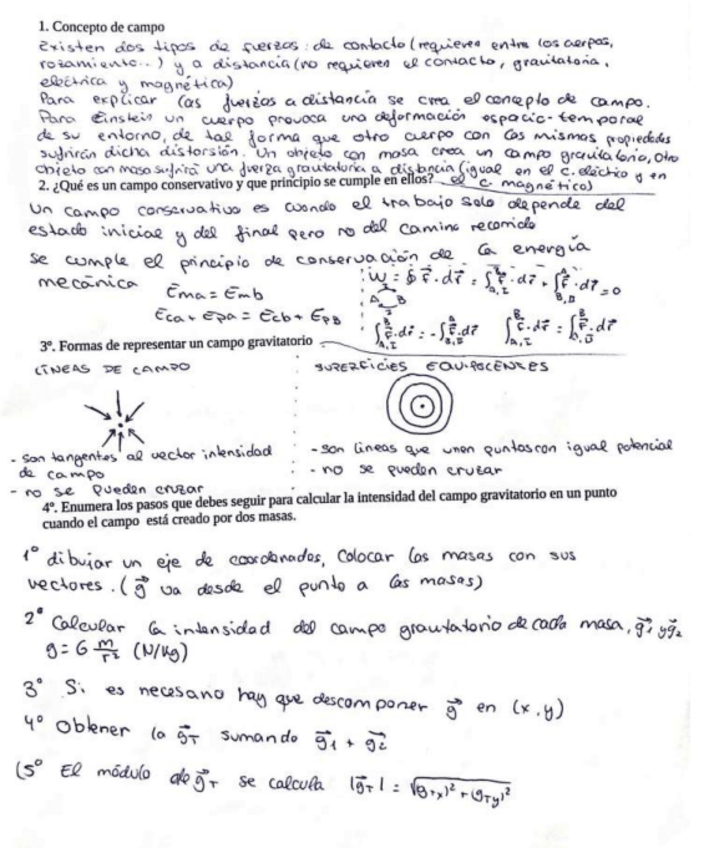 1. Concepto de campo
Existen dos tipos de fuerzas: de contacto (requieren entre los cuerpos,
rozamiento...) y a distancia (no requieren el contacto, gravitatoria,
eléctrica y magnética)
Para explicar las fuerzas a distancia se crea el concepto de campo.
Para Einstein un cuerpo provoca una deformación espacio-temporal
de su entorno, de tal forma que otro cuerpo con las mismas propiedades
sufrirán dicha distorsión. Un objeto con masa crea un campo gravitatorio, otro
objeto con masa sufrirá una fuerza gravitatoria a distancia (igual en el c. eléctrico y en
el c. magnético)
2. ¿Qué es un campo conservativo y que principio se cumple en ellos?
Un campo conservativo es cuando el trabajo solo depende del
estado inicial y del final pero no del camino recorrido
se cumple el principio de conservación de la energía
mecánica
Ema = Emb
Eca + Epa = Ecb + EpB
W = ∮ F⃗ · dr⃗ = ∫ F⃗ · dr⃗ + ∫ F⃗ · dr⃗ = 0
A B
∫ F⃗ · dr⃗ = - ∫ F⃗ · dr⃗ ∫ F⃗ · dr⃗ = ∫ F⃗ · dr⃗
3º. Formas de representar un campo gravitatorio
LÍNEAS DE CAMPO
- son tangentes al vector intensidad
de campo
- no se pueden cruzar
SUPERFICIES
- son líneas que unen puntos con igual potencial
- no se pueden cruzar
4º. Enumera los pasos que debes seguir para calcular la intensidad del campo gravitatorio en un punto
cuando el campo está creado por dos masas.
1º dibujar un eje de coordenadas, Colocar las masas con sus
vectores. (g⃗ va desde el punto a las masas)
2º Calcular la intensidad del campo gravitatorio de cada masa, g⃗1 y g⃗2
g = G m/r² (N/Kg)
3º Si es necesario hay que descomponer g⃗ en (x,y)
4º Obtener la g⃗T sumando g⃗1 + g⃗2
(5º El módulo de g⃗T se calcula |g⃗T| = √(gTx)² + (gTy)²